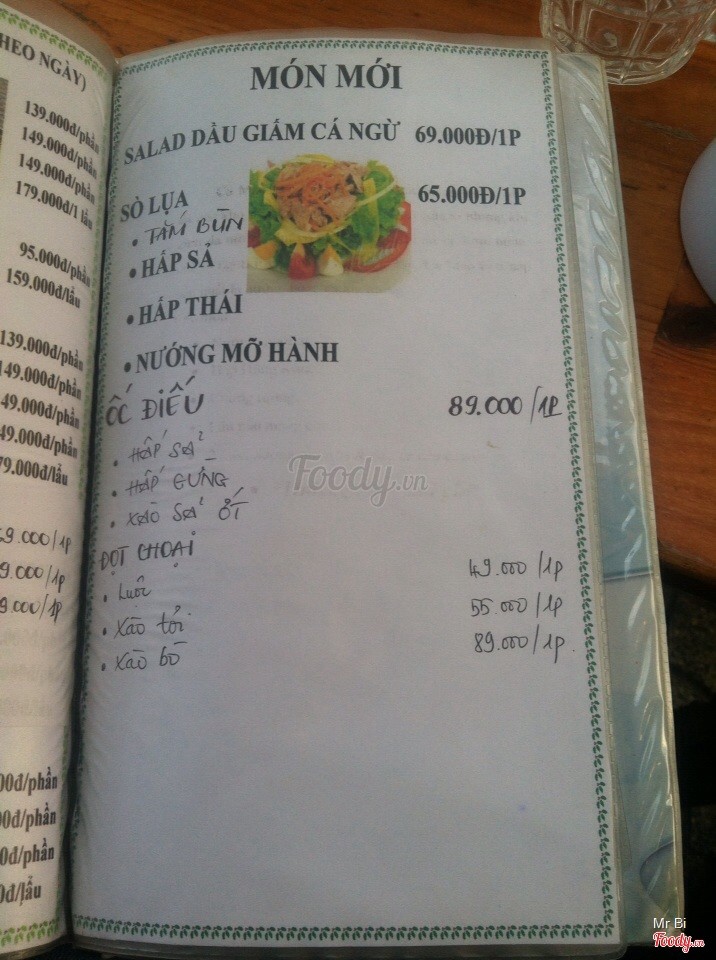 HEO NGÀY)
139.000đ/phần
149.000đ/phần
149.000đ/phần
179.000đ/1 lẩu
95.000đ/phần
159.000đ/lẩu
139.000đ/phần
149.000đ/phần
49.000đ/phần
49.000đ/phần
79.000đ/lẩu
9.000/1P
9.000/1P
9.000/1P
00đ/phần
00đ/phần
0đ/phần
0đ/lẩu
MÓN MỚI
SALAD DẦU GIẤM CÁ NGỪ 69.000Đ/1P
SÒ LỤA 65.000Đ/1P
• TẮM BÙN
• HẤP SẢ
• HẤP THÁI
• NƯỚNG MỠ HÀNH
ỐC ĐIẾU 89.000/1P
• HẤP SẢ
• HẤP GỪNG
• XÀO SẢ ỚT
ĐỌT CHOẠI
• Luộc 49.000/1p
• Xào tỏi 55.000/1p
• Xào bò 89.000/1p.
Foody.vn
Mr Bi
Foody.vn